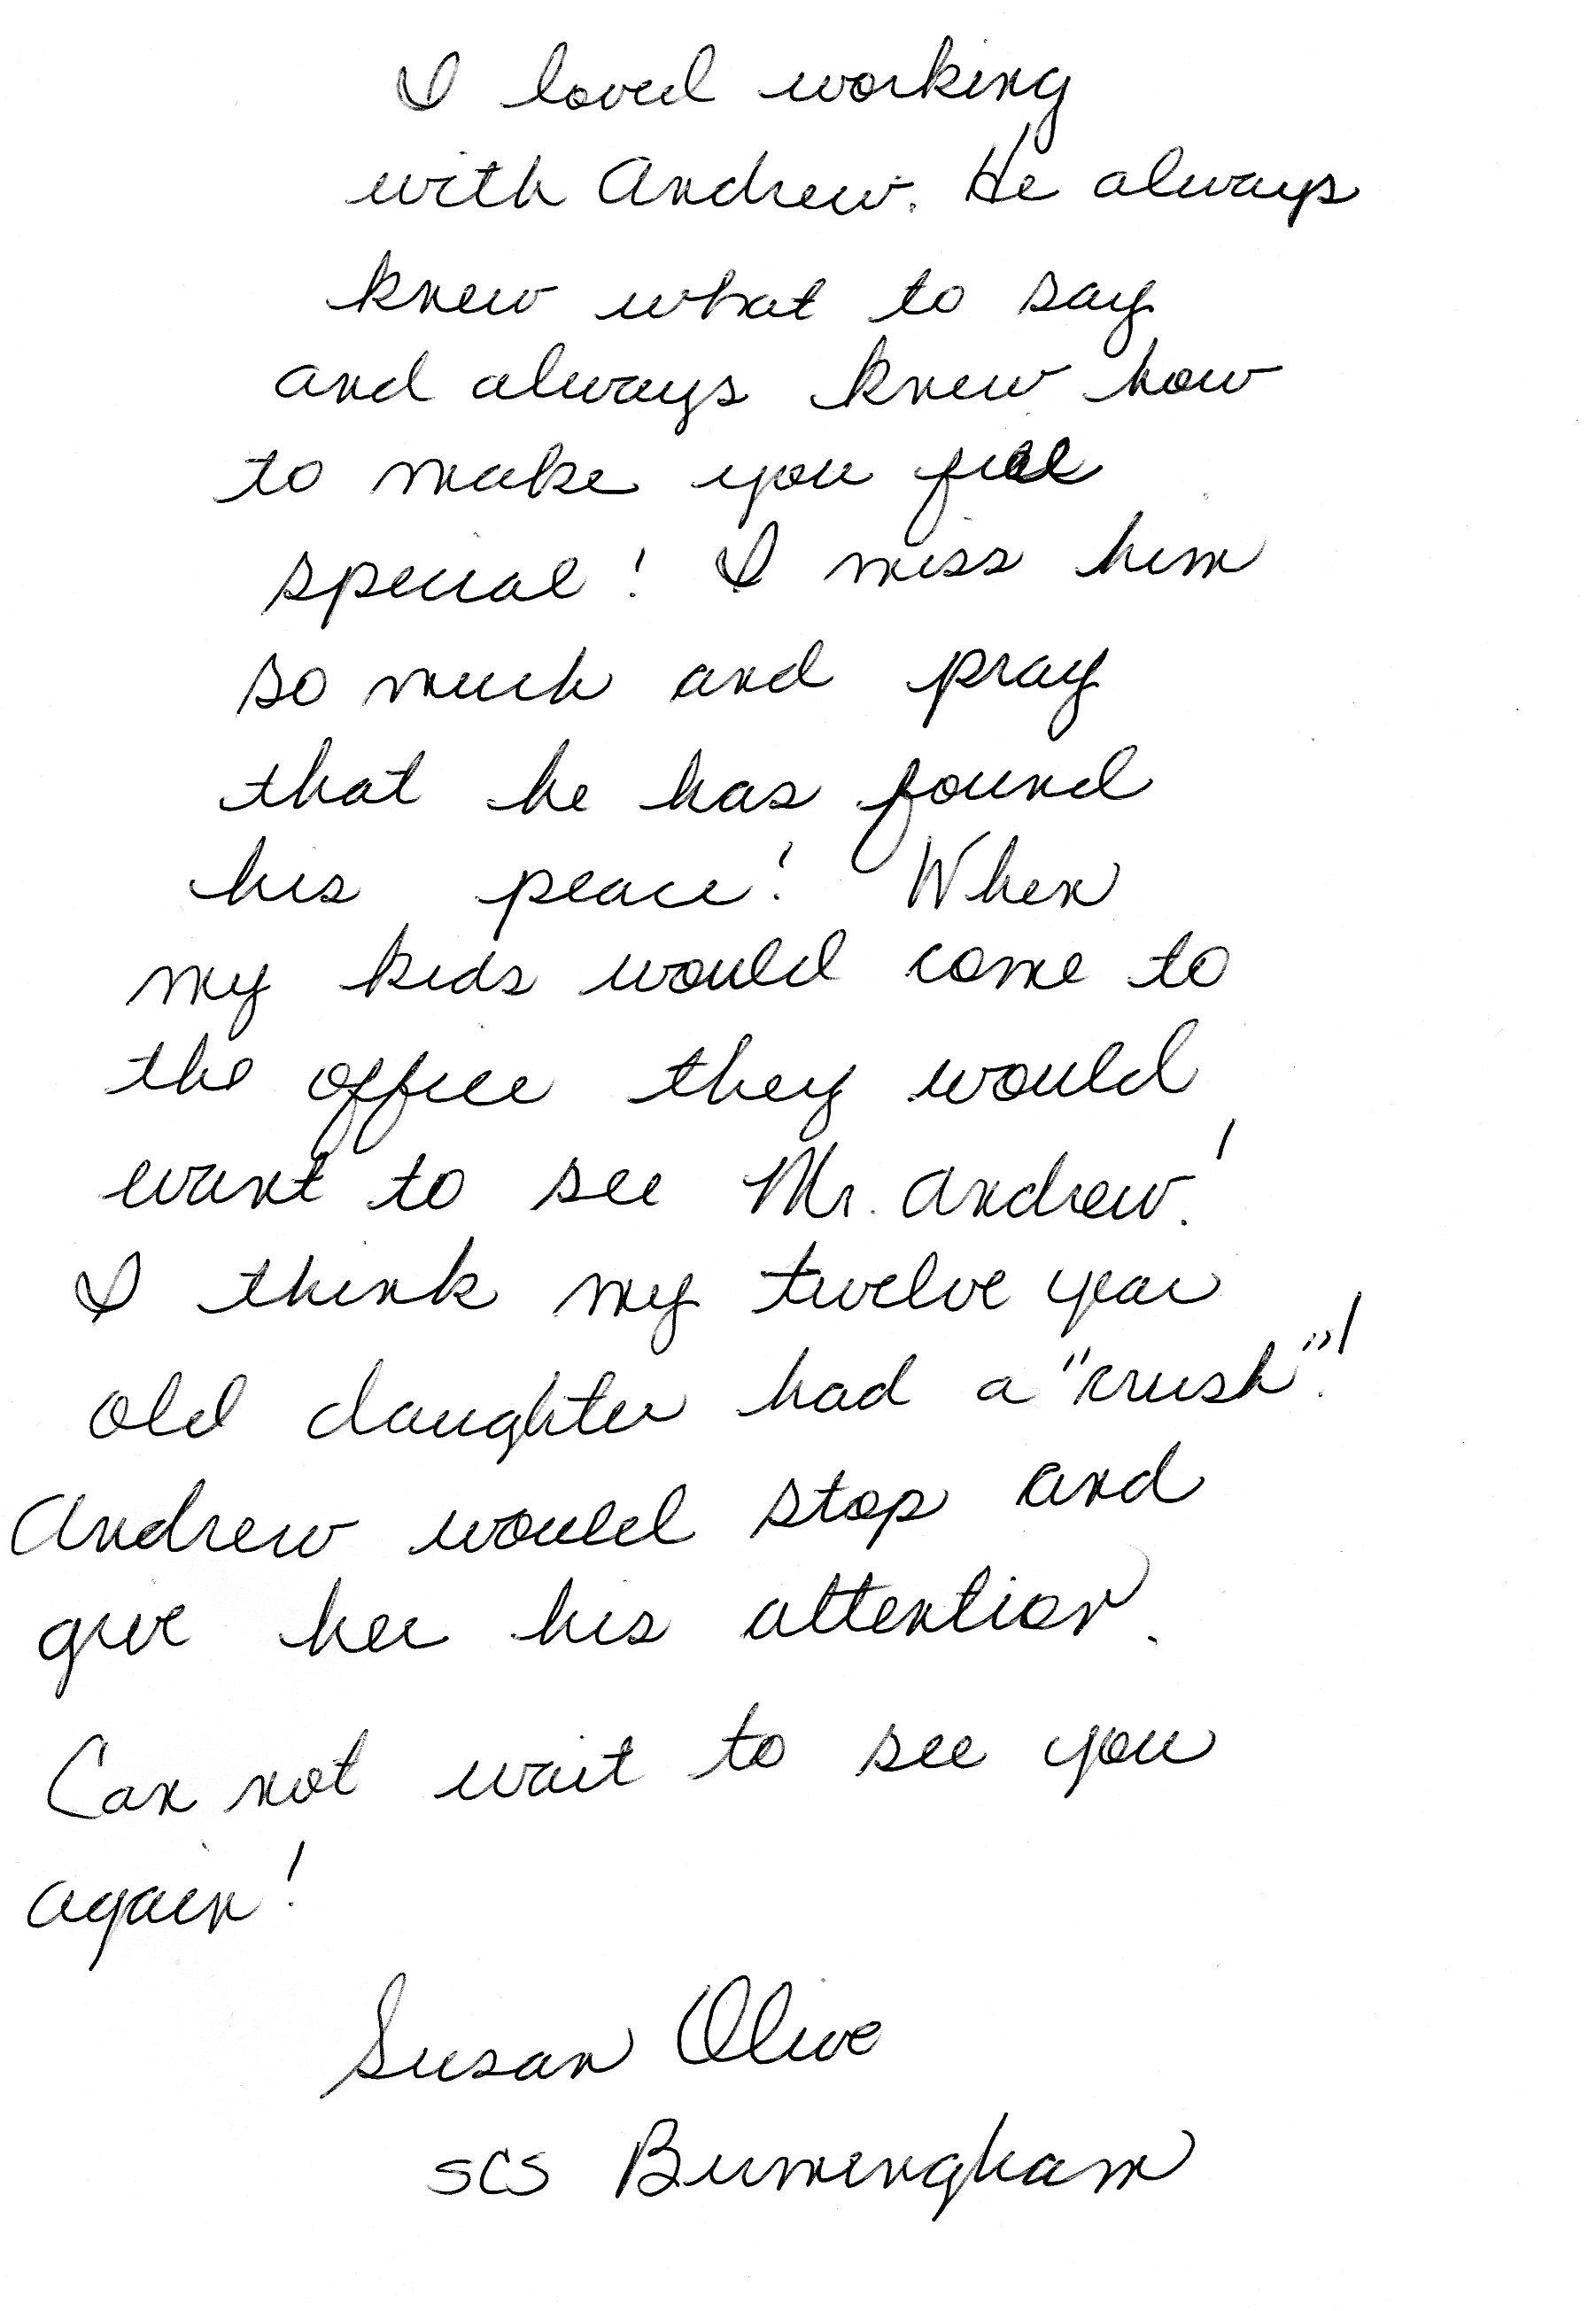 I loved working
with Andrew. He always
knew what to say
and always knew how
to make you feel
special! I miss him
so much and pray
that he has found
his peace! When
my kids would come to
the office they would
want to see Mr. Andrew!
I think my twelve year
old daughter had a "crush"!
Andrew would stop and
give her his attention.
Can not wait to see you
again!
Susan Olive
SCS Birmingham